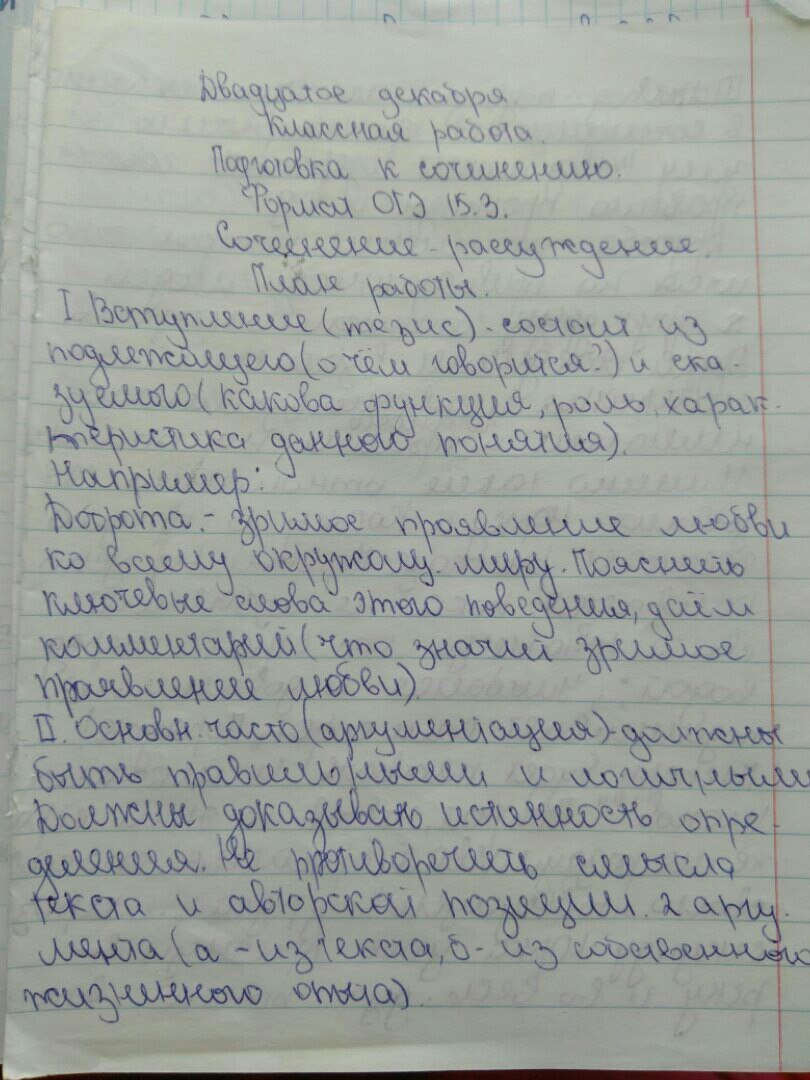 Двадцатое декабря.
Классная работа.
Подготовка к сочинению.
Формат ОГЭ 15.3.
Сочинение-рассуждение.
План работы.
I. Вступление (тезис) - состоит из
подлежащего (о чём говорится?) и ска-
зуемого (какова функция, роль, харак-
теристика данного понятия).
Например:
Доброта - зримое проявление любви
ко всему окружому миру. Пояснить
ключевые слова этого поведения, даём
комментарий (что значит зримое
проявление любви)
II. Основн. часть (аргументация) - должны
быть правильными и логичными
Должны доказывать истинность опре-
деления. Не противоречить смысла
текста и авторской позиции. 2 аргу-
мента (а - из текста, б - из собственного
жизненного опыта)